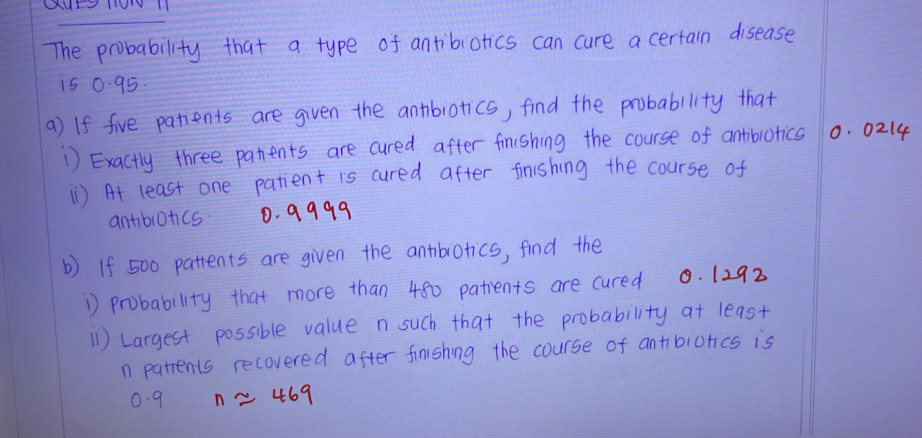 QUESTION 11
The probability that a type of antibiotics can cure a certain disease
is 0.95.
a) If five patients are given the antibiotics, find the probability that
i) Exactly three patients are cured after finishing the course of antibiotics 0.0214
ii) At least one patient is cured after finishing the course of
antibiotics. 0.9999
b) If 500 patients are given the antibiotics, find the
i) probability that more than 480 patients are cured 0.1292
ii) Largest possible value n such that the probability at least
n patients recovered after finishing the course of antibiotics is
0.9 n ≃ 469